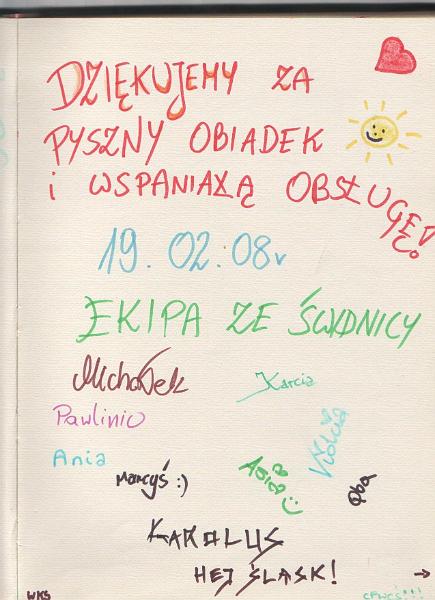 DZIĘKUJEMY ZA
PYSZNY OBIADEK
i WSPANIAŁĄ OBSŁUGĘ!
19.02.08r
EKIPA ZE ŚWIDNICY
Michałek
Karcia
Pawlinio
Violcia
Ania
Marcyś :)
Aga
Qba
KAROLUS
HEJ ŚLĄSK!
WKS